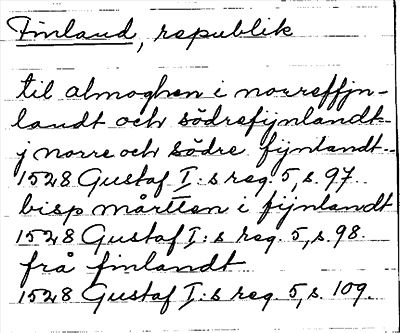 Finland, republik
til almoghen i norreffjn-
landt och södrefijnlandt
j norre och södre fijnlandt
1528 Gustaf I:s reg. 5, s. 97.
bisp mårtten i fijnlandt
1528 Gustaf I:s reg. 5, s. 98.
frå finlandt
1528 Gustaf I:s reg. 5, s. 109.